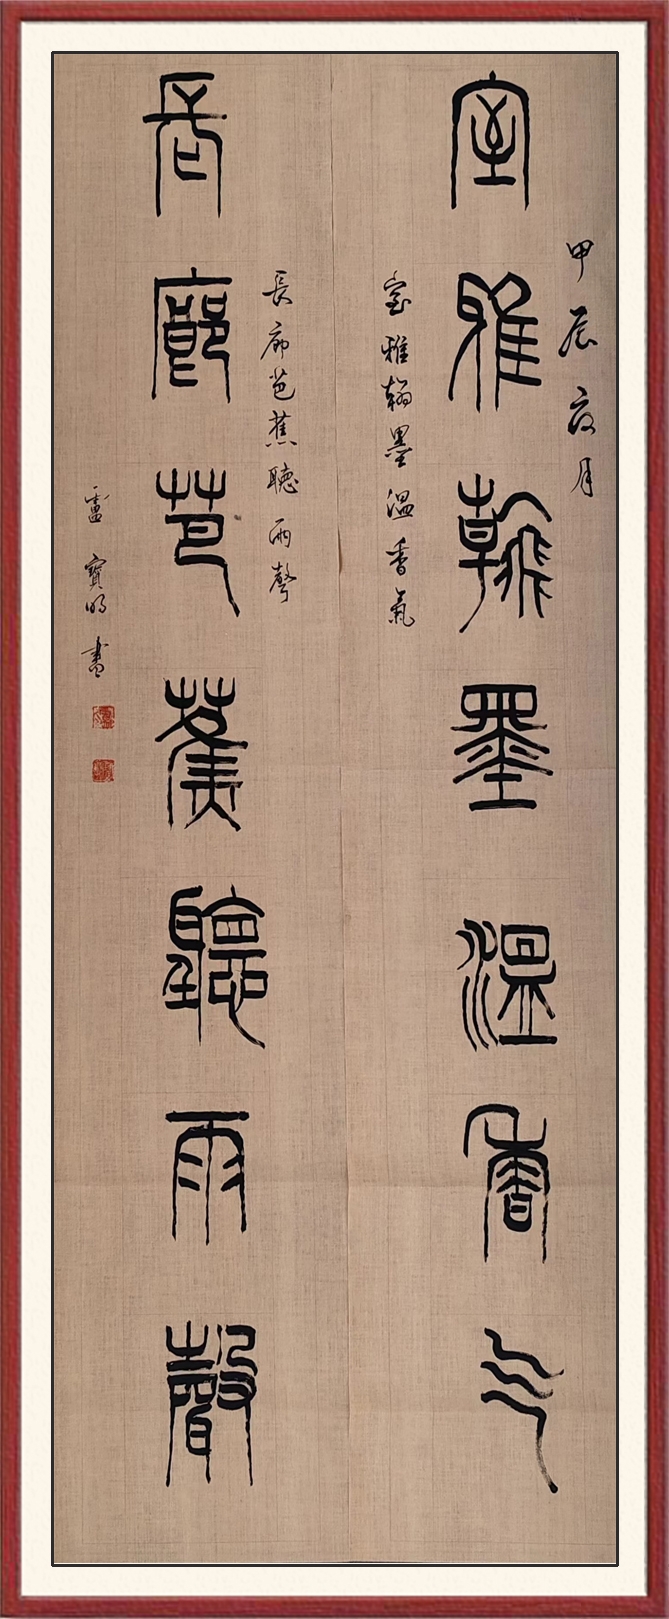 甲辰夜月
室雅翰墨溫香气
室雅翰墨溫香氣
長廊芭蕉聽雨聲
長廊芭蕉聽雨聲
盧寶明書